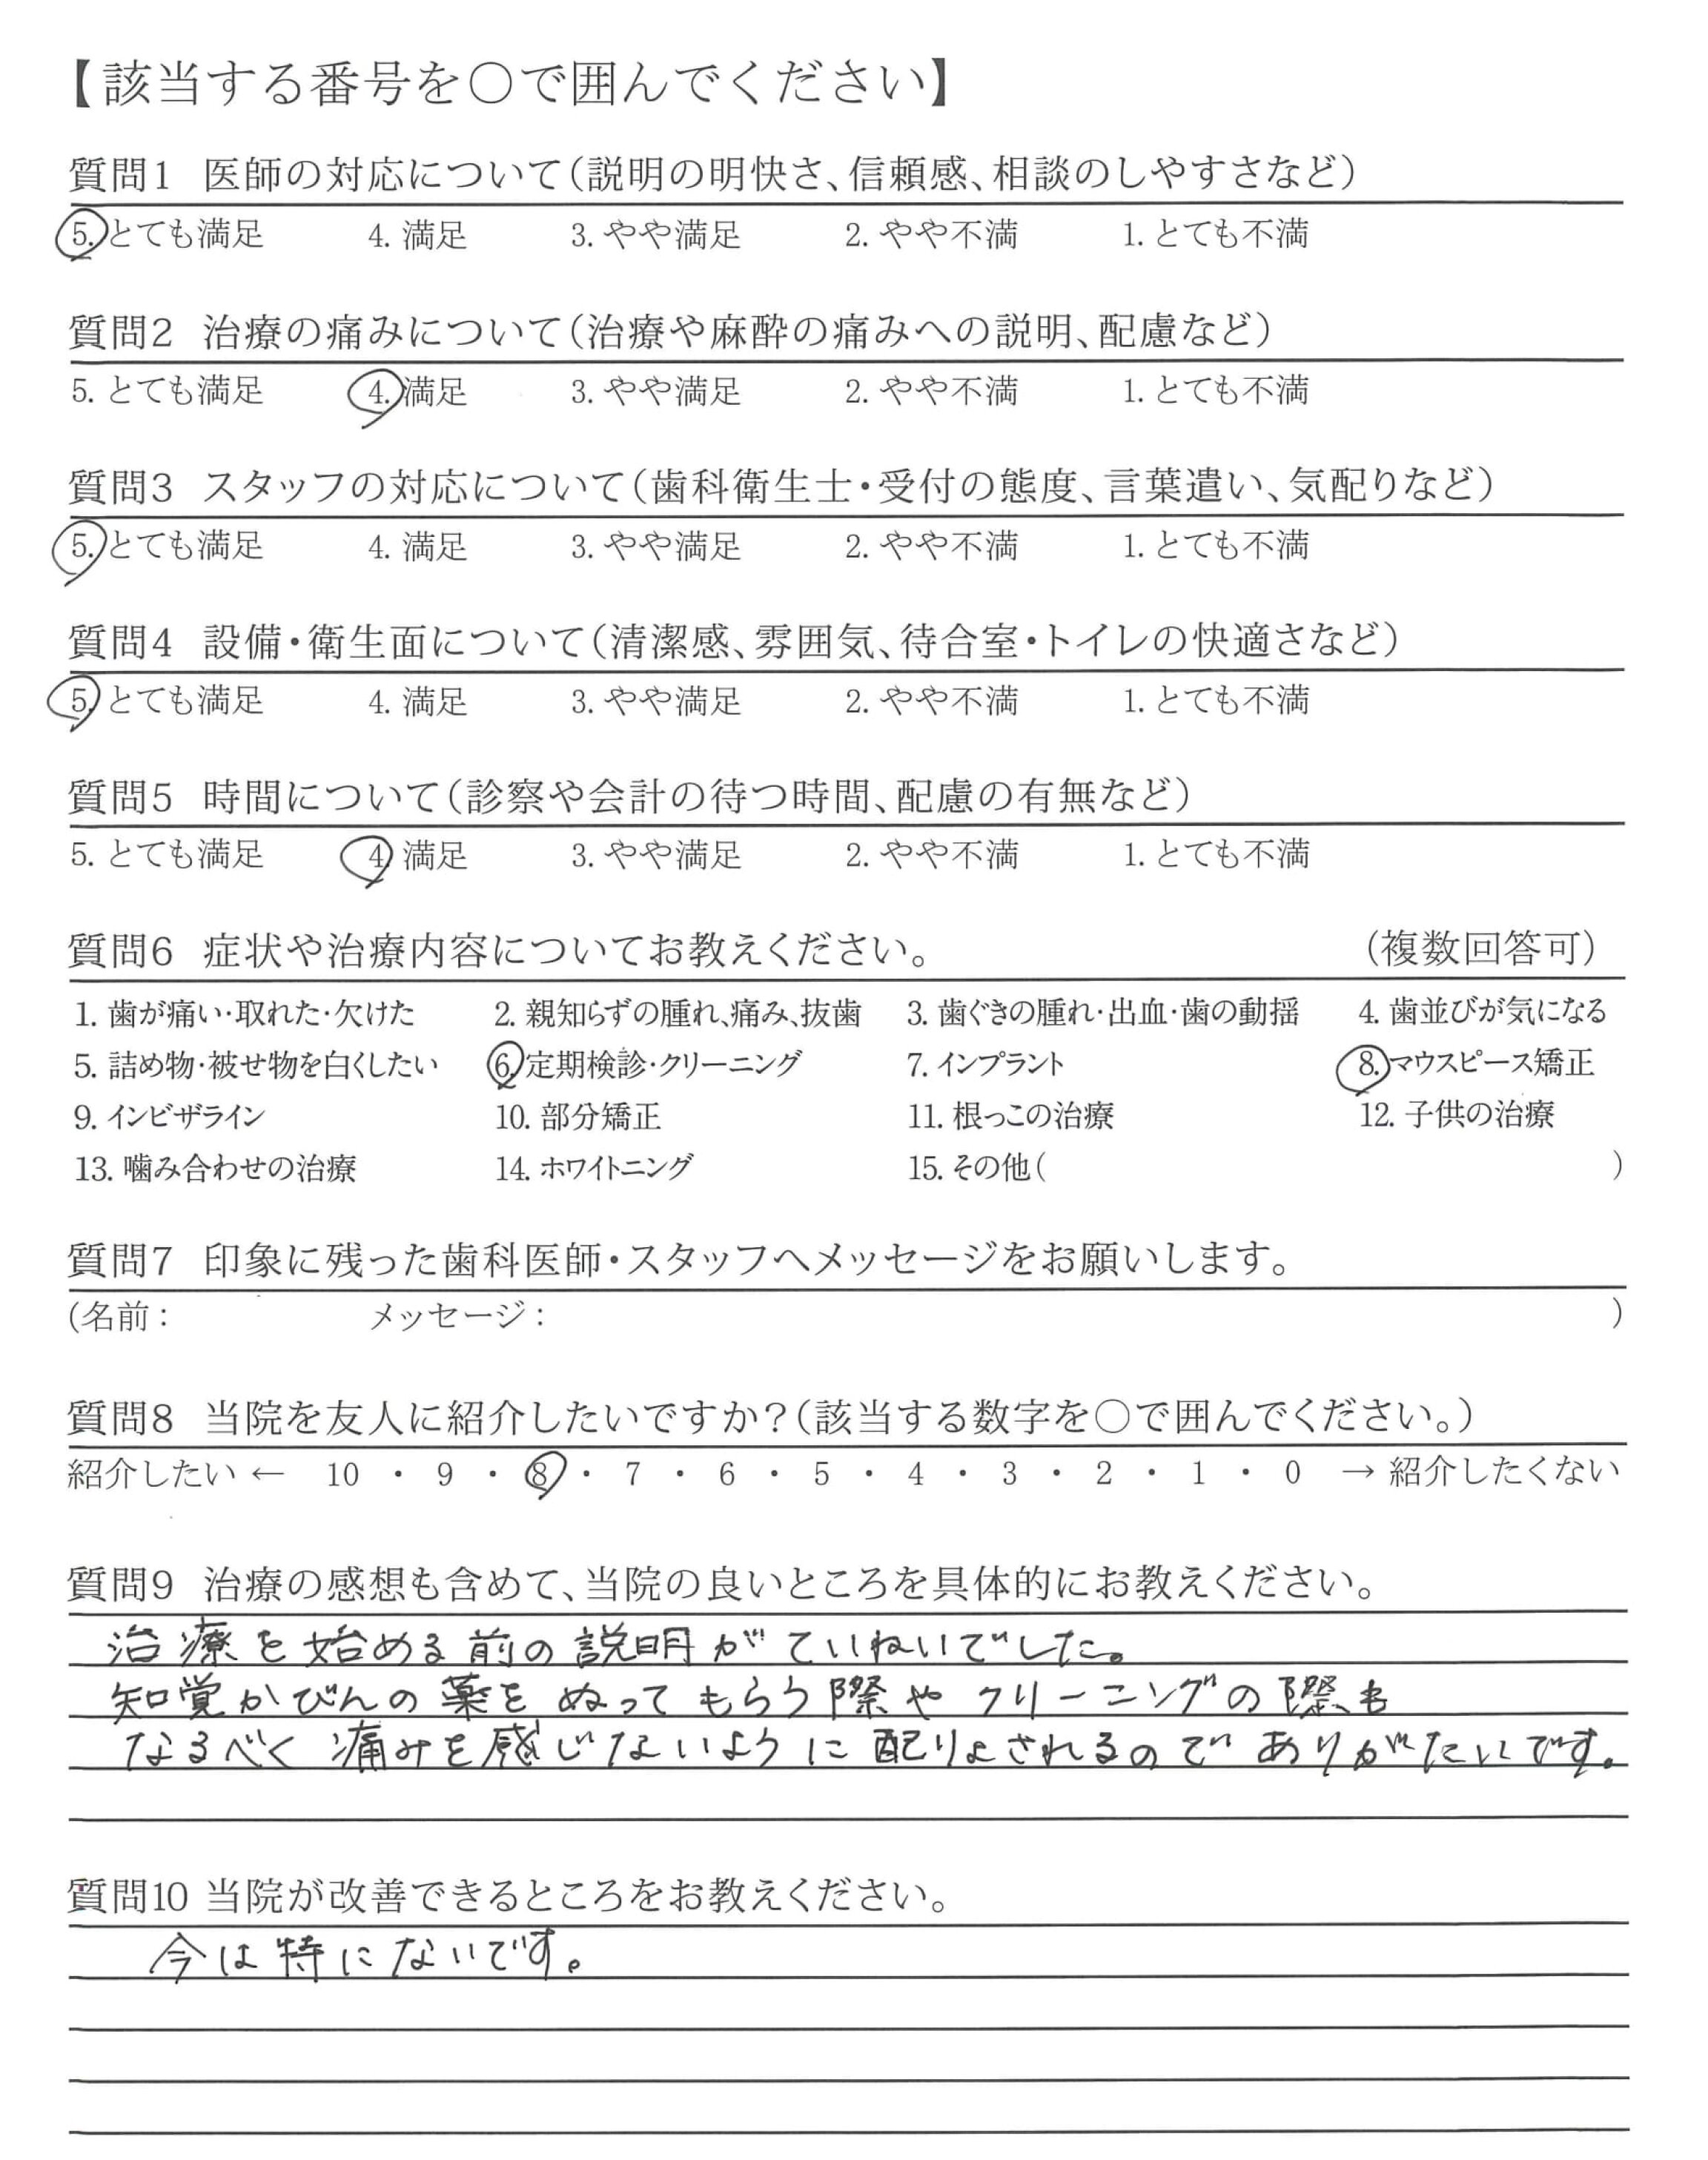 【該当する番号を○で囲んでください】
質問1 医師の対応について(説明の明快さ、信頼感、相談のしやすさなど)
5. とても満足 4. 満足 3. やや満足 2. やや不満 1. とても不満
質問2 治療の痛みについて(治療や麻酔の痛みへの説明、配慮など)
5. とても満足 4. 満足 3. やや満足 2. やや不満 1. とても不満
質問3 スタッフの対応について(歯科衛生士・受付の態度、言葉遣い、気配りなど)
5. とても満足 4. 満足 3. やや満足 2. やや不満 1. とても不満
質問4 設備・衛生面について(清潔感、雰囲気、待合室・トイレの快適さなど)
5. とても満足 4. 満足 3. やや満足 2. やや不満 1. とても不満
質問5 時間について(診察や会計の待つ時間、配慮の有無など)
5. とても満足 4. 満足 3. やや満足 2. やや不満 1. とても不満
質問6 症状や治療内容についてお教えください。 (複数回答可)
1. 歯が痛い・取れた・欠けた 2. 親知らずの腫れ、痛み、抜歯 3. 歯ぐきの腫れ・出血・歯の動揺 4. 歯並びが気になる
5. 詰め物・被せ物を白くしたい 6. 定期検診・クリーニング 7. インプラント 8. マウスピース矯正
9. インビザライン 10. 部分矯正 11. 根っこの治療 12. 子供の治療
13. 噛み合わせの治療 14. ホワイトニング 15. その他( )
質問7 印象に残った歯科医師・スタッフへメッセージをお願いします。
(名前: メッセージ: )
質問8 当院を友人に紹介したいですか?(該当する数字を○で囲んでください。)
紹介したい ← 10 ・ 9 ・ 8 ・ 7 ・ 6 ・ 5 ・ 4 ・ 3 ・ 2 ・ 1 ・ 0 → 紹介したくない
質問9 治療の感想も含めて、当院の良いところを具体的にお教えください。
治療を始める前の説明がていねいでした。
知覚かびんの薬をぬってもらう際やクリーニングの際も
なるべく痛みを感じないように配りょされるのでありがたいです。
質問10 当院が改善できるところをお教えください。
今は特にないです。